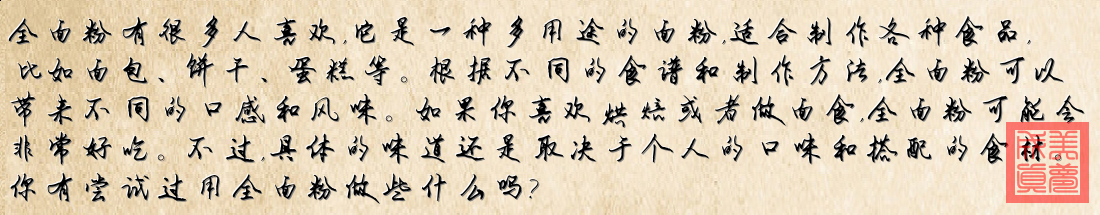 全面粉有很多人喜欢,它是一种多用途的面粉,适合制作各种食品,
比如面包、饼干、蛋糕等。根据不同的食谱和制作方法,全面粉可以
带来不同的口感和风味。如果你喜欢烘焙或者做面食,全面粉可能会
非常好吃。不过,具体的味道还是取决于个人的口味和搭配的食材。
你有尝试过用全面粉做些什么吗?